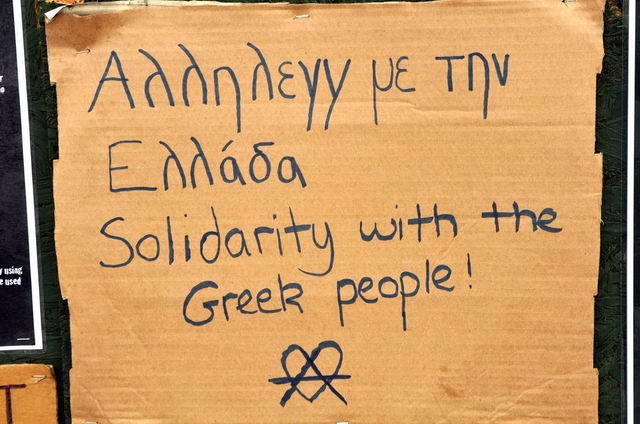 Αλληλεγγ με την
Ελλάδα
Solidarity with the
Greek people!
y using
e used
T